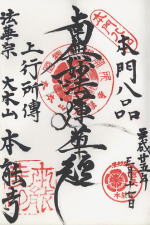 本門八品
南無妙法蓮華経
上行所傳
法華宗
大本山 本能寺
平成廿五年